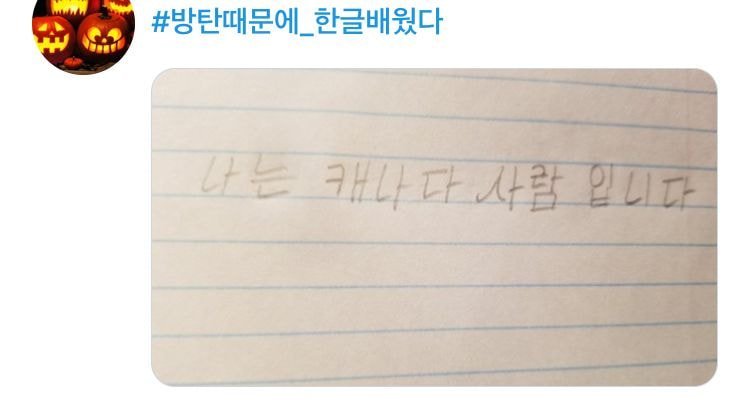 #방탄때문에_한글배웠다
나는 캐나다 사람 입니다